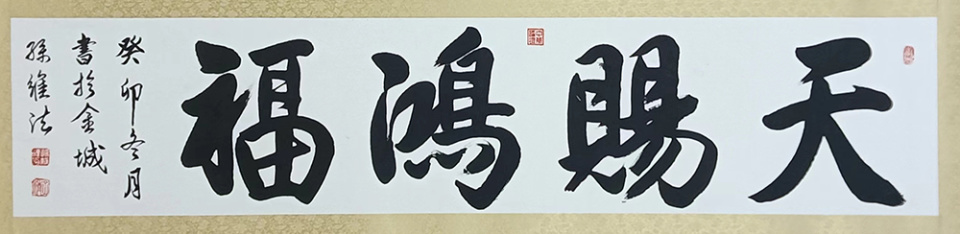 天賜鴻福
癸卯冬月
書於金城
孫維法